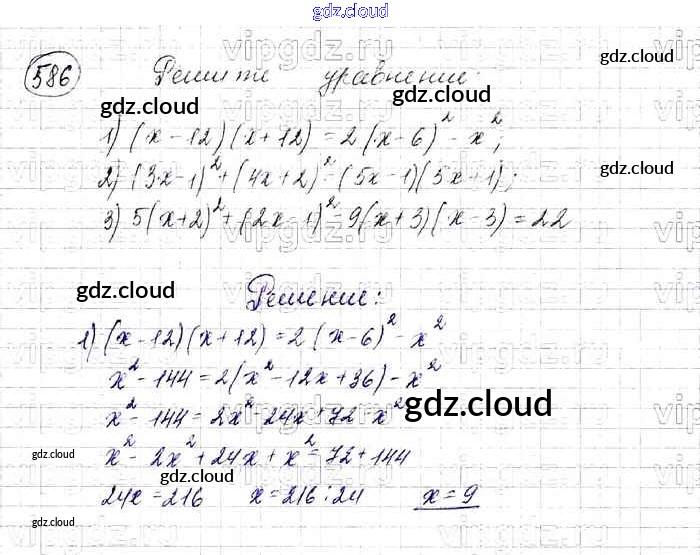 gdz.cloud
586 Решите уравнение:
gdz.cloud
gdz.cloud
gdz.cloud
1) (x-12)(x+12) = 2(x-6)² - x²;
2) (3x-1)² + (4x+2)² = (5x-1)(5x+1);
gdz.cloud
gdz.cloud
3) 5(x+2)² + (2x-1)² - 9(x+3)(x-3) = 22
gdz.cloud
gdz.cloud
Решение:
1) (x-12)(x+12) = 2(x-6)² - x²
x² - 144 = 2(x² - 12x + 36) - x²
x² - 144 = 2x² - 24x + 72 - x²
gdz.cloud
x² - 2x² + 24x + x² = 72 + 144
gdz.cloud
gdz.cloud
gdz.cloud
24x = 216 x = 216 : 24 x = 9
gdz.cloud